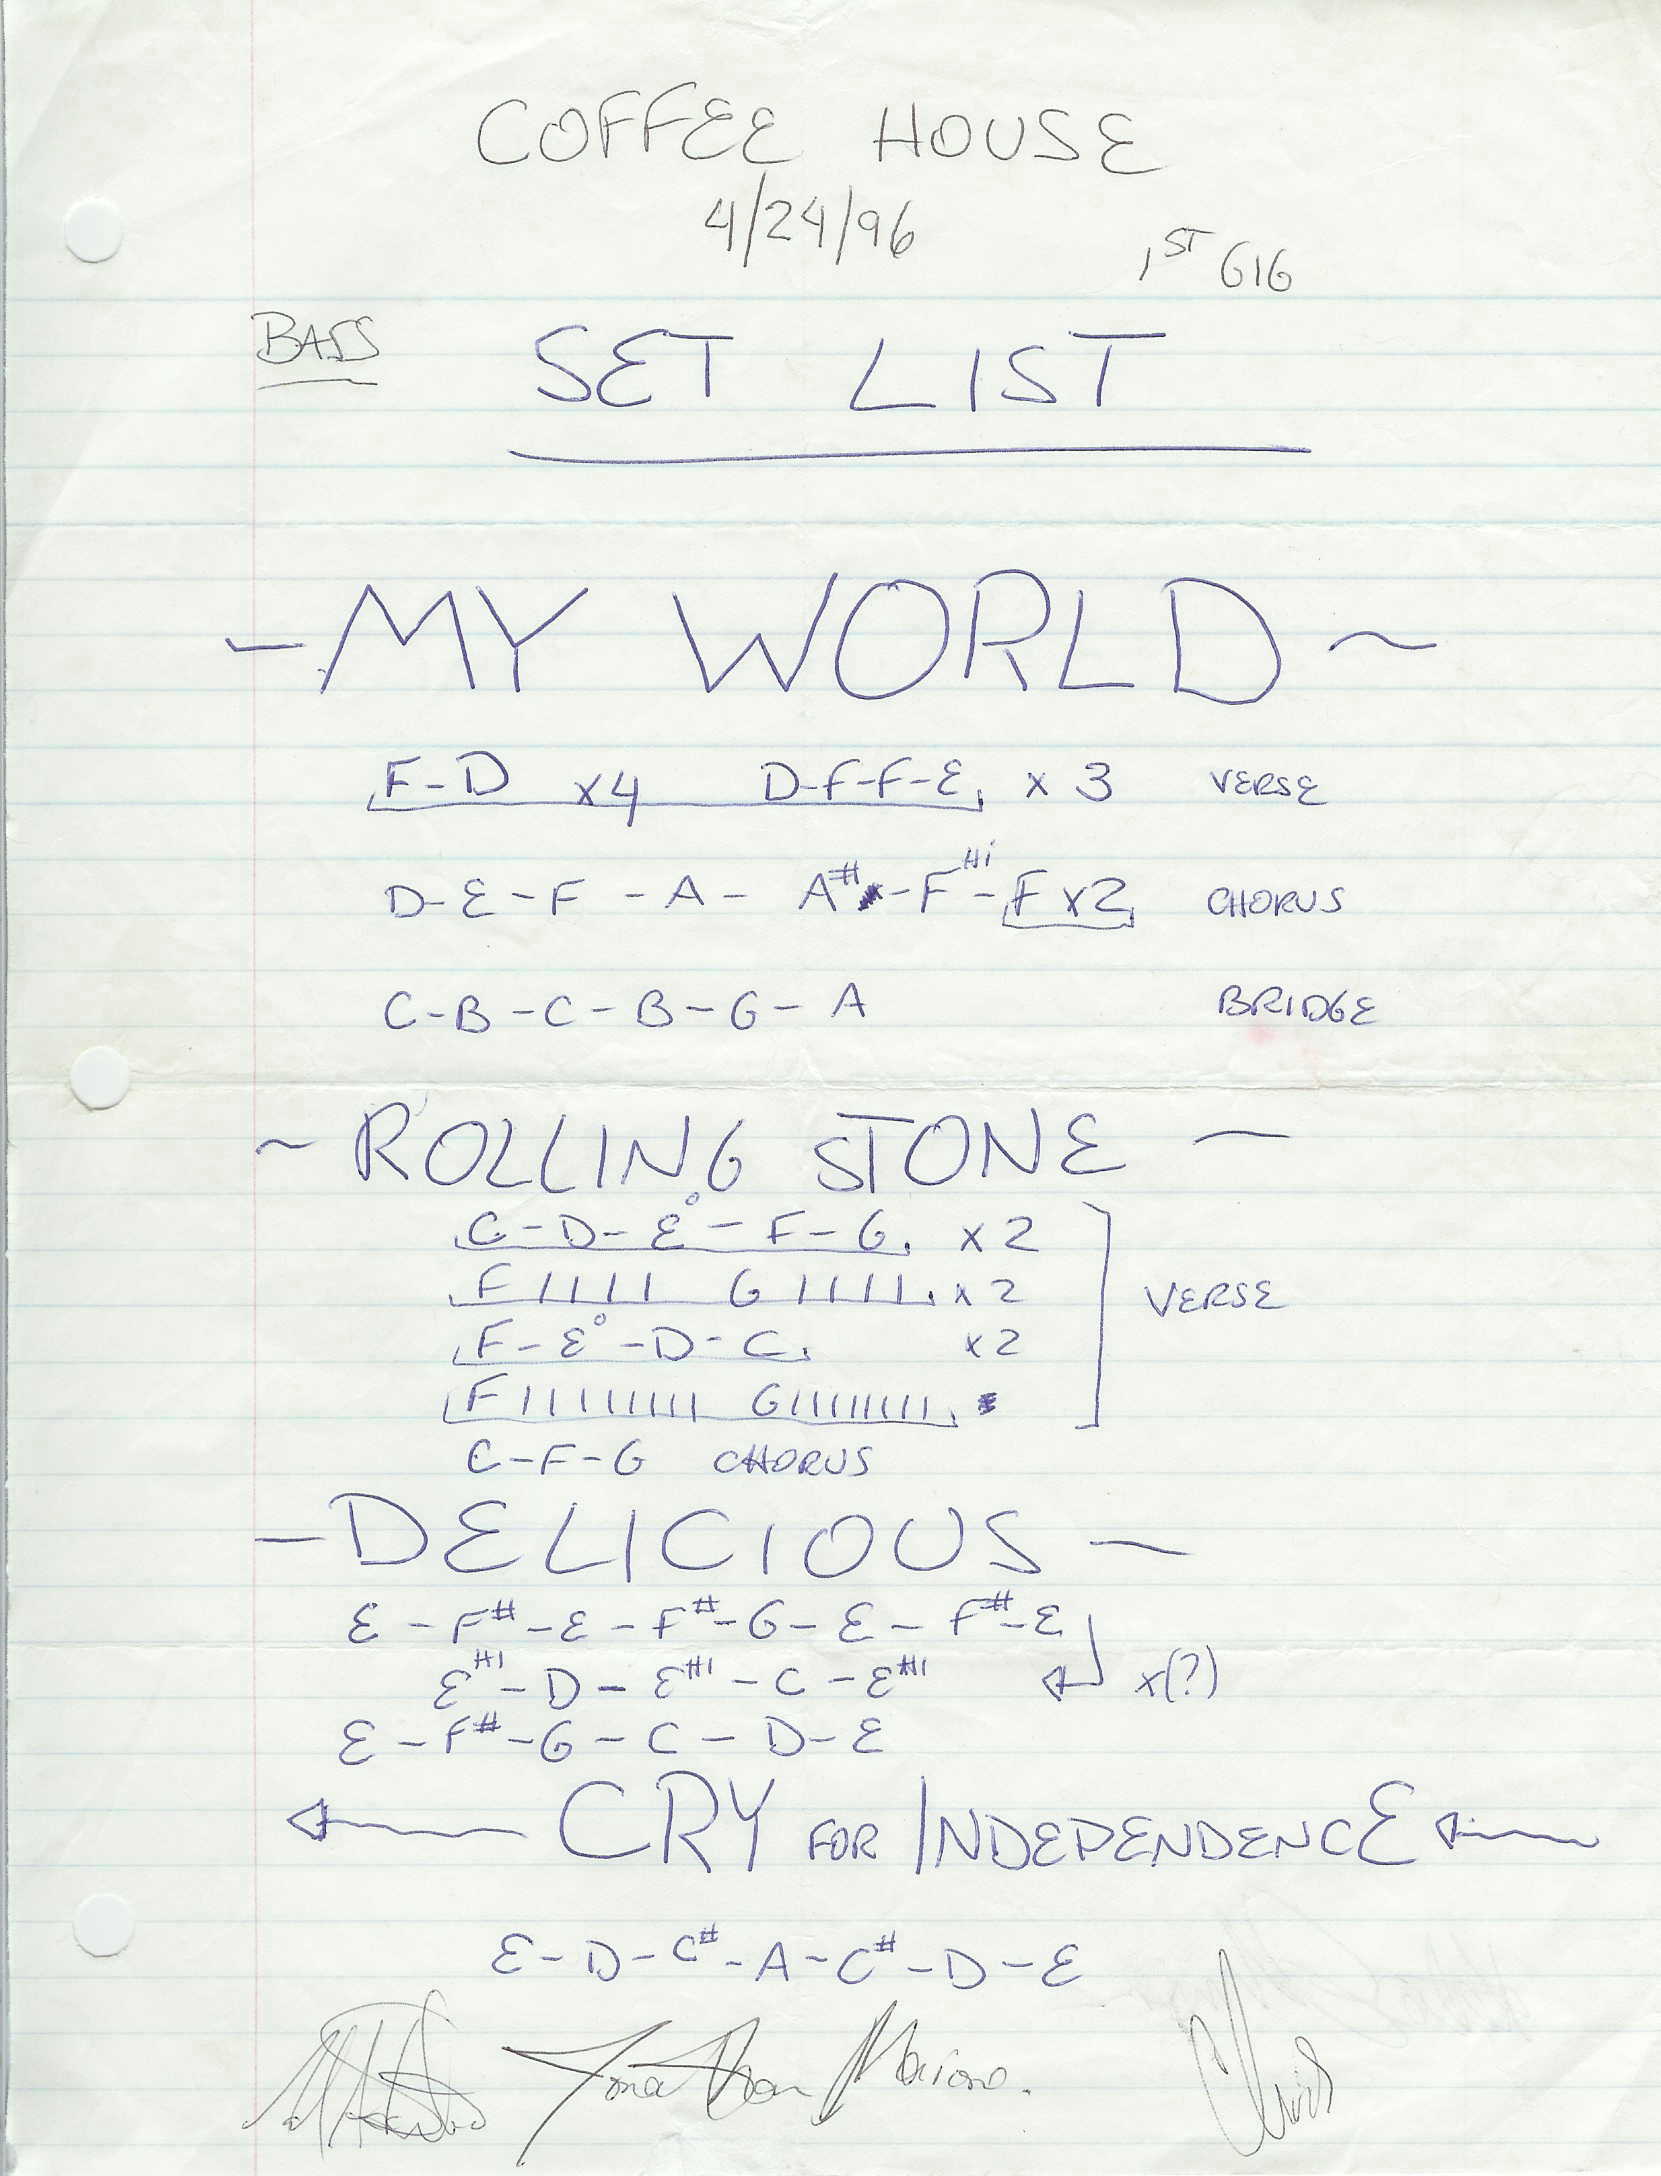 COFFEE HOUSE
4/24/96
1ST GIG
BASS
SET LIST
- MY WORLD ~
F-D x4 D-F-F-E x 3 VERSE
D-E-F-A-A#-F HI-F x2 CHORUS
C-B-C-B-G-A BRIDGE
~ ROLLING STONE ~
C-D-E°-F-G x2
F |||| G ||||| x2
VERSE
F-E°-D-C x2
F ||||||||| G |||||||||
C-F-G CHORUS
- DELICIOUS ~
E-F#-E-F#-G-E-F#-E
E HI-D-E HI-C-E HI x(?)
E-F#-G-C-D-E
← CRY FOR INDEPENDENCE ←
E-D-C#-A-C#-D-E
Jonathan Chris